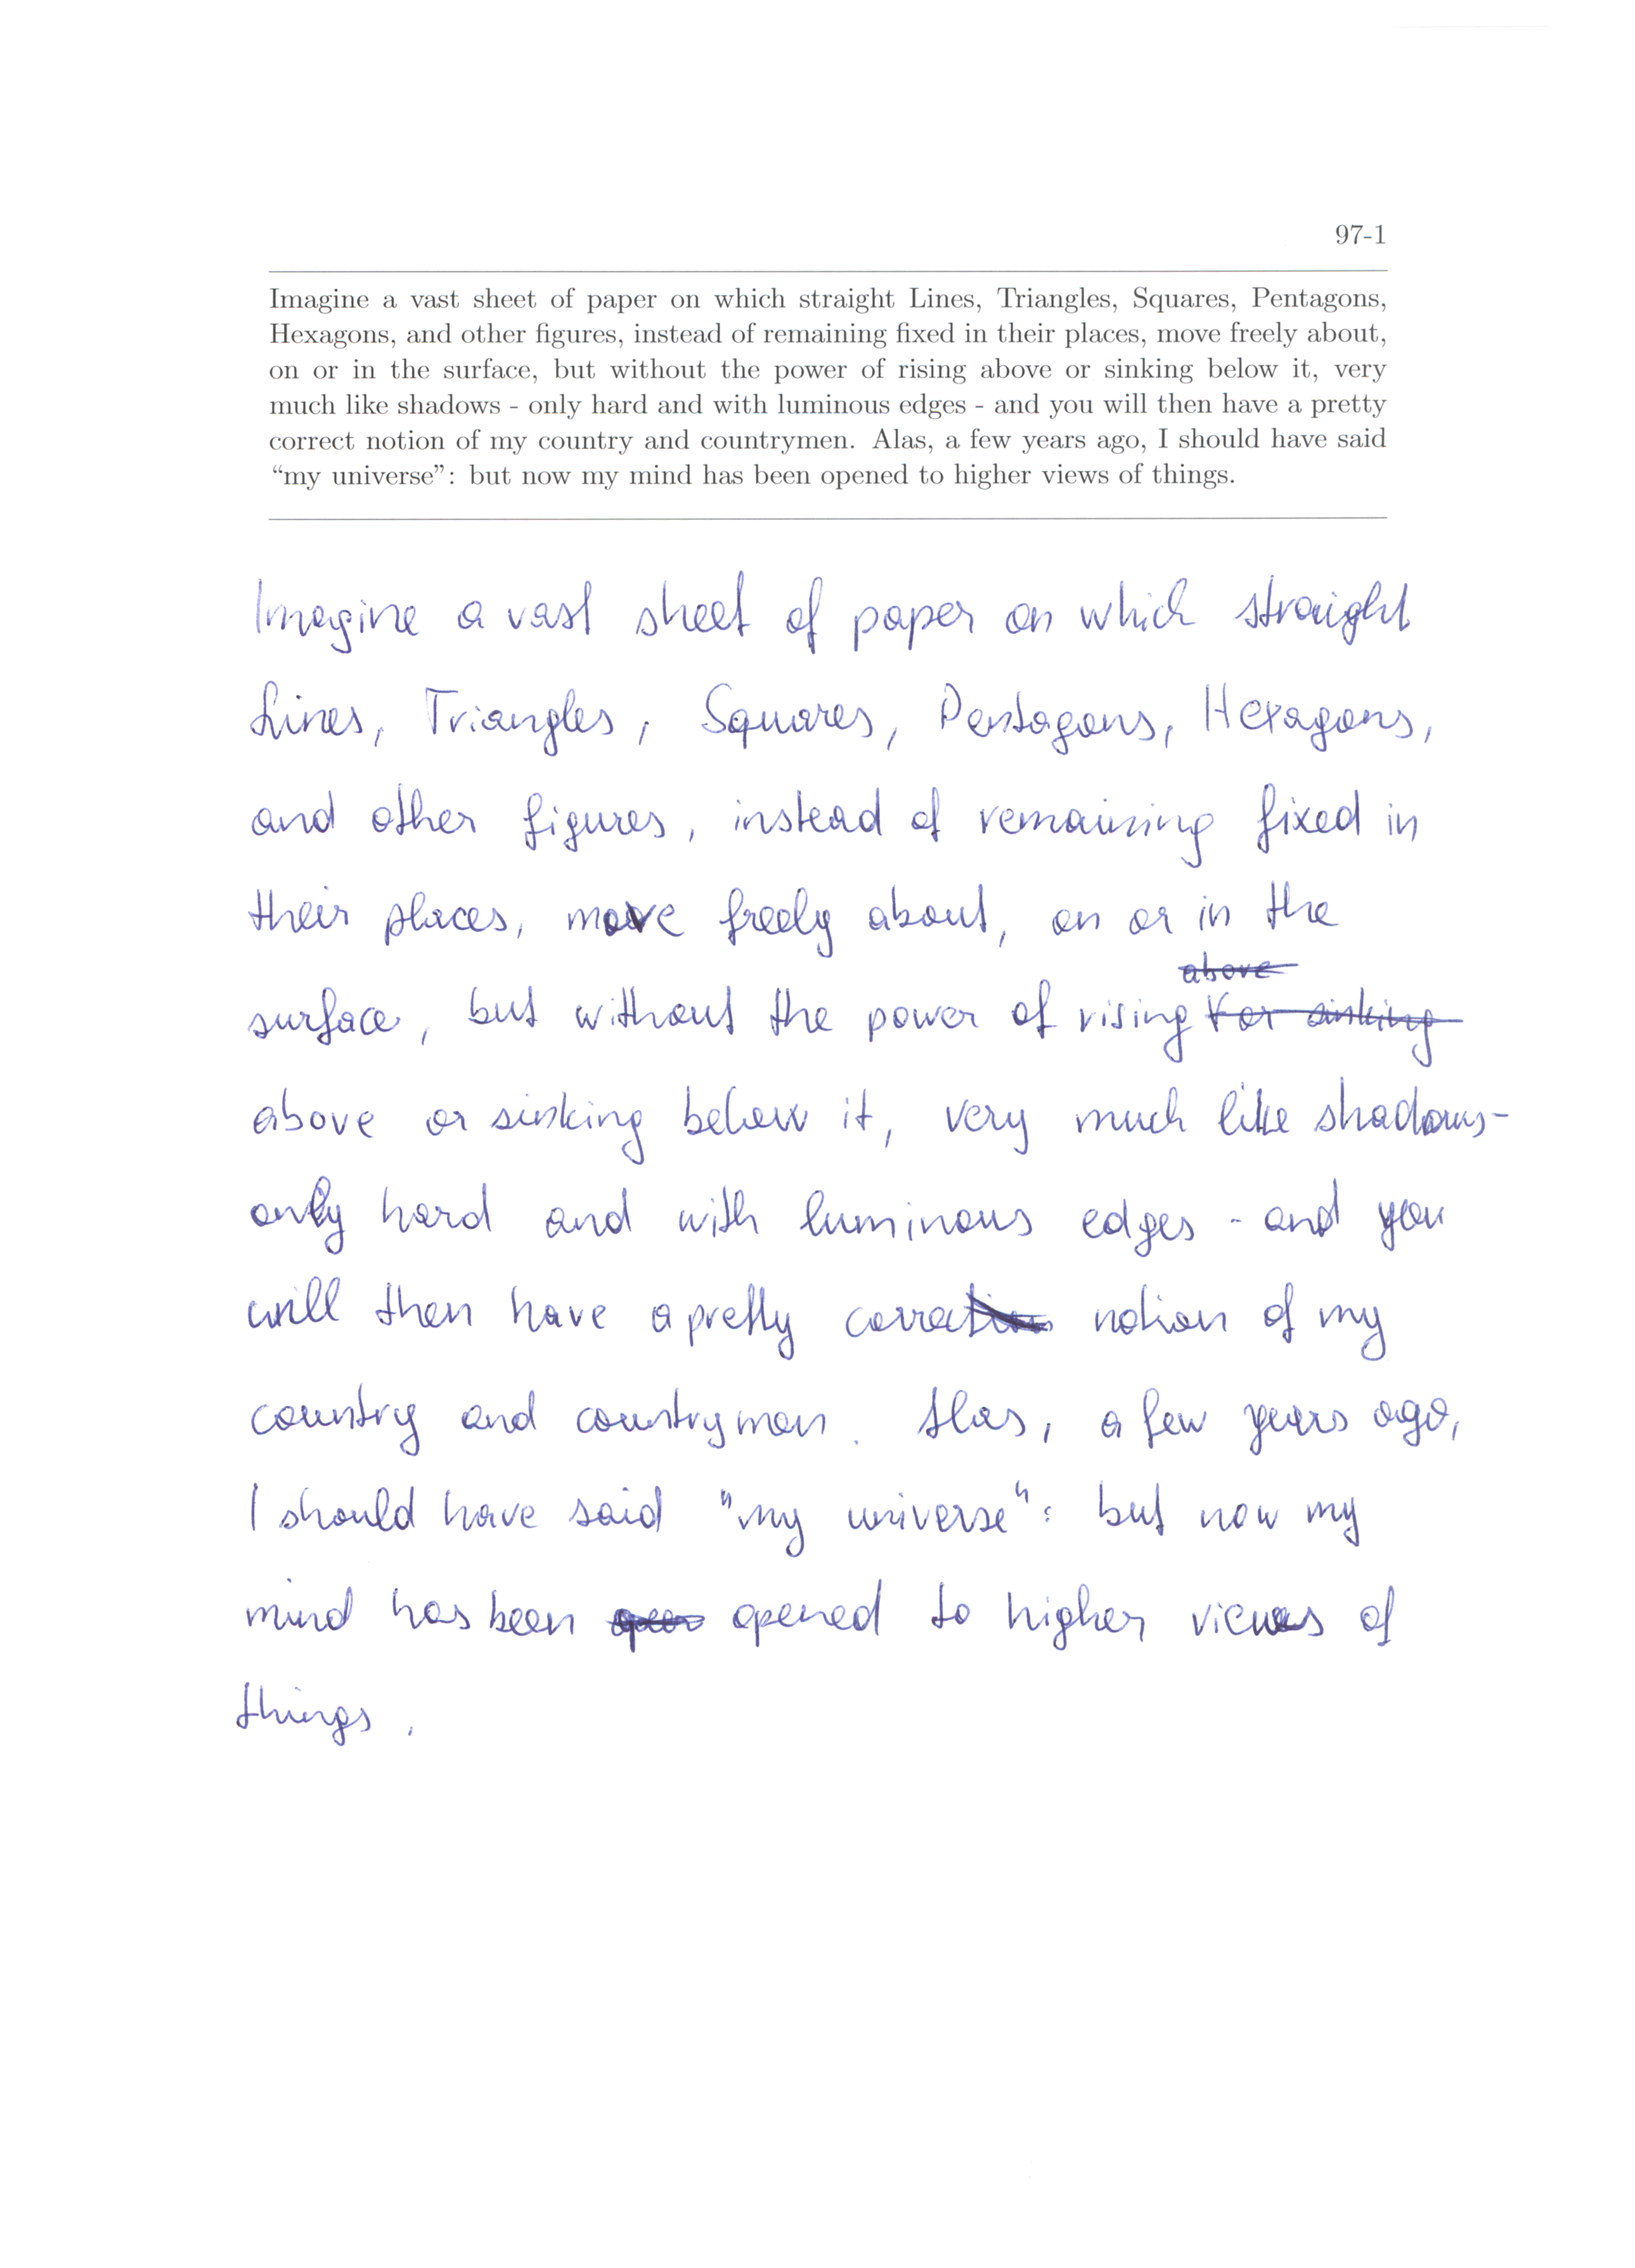 97-1
Imagine a vast sheet of paper on which straight Lines, Triangles, Squares, Pentagons,
Hexagons, and other figures, instead of remaining fixed in their places, move freely about,
on or in the surface, but without the power of rising above or sinking below it, very
much like shadows - only hard and with luminous edges - and you will then have a pretty
correct notion of my country and countrymen. Alas, a few years ago, I should have said
“my universe”: but now my mind has been opened to higher views of things.
Imagine a vast sheet of paper on which straight
Lines, Triangles, Squares, Pentagons, Hexagons,
and other figures, instead of remaining fixed in
their places, move freely about, on or in the
above
surface, but without the power of rising or sinking
above or sinking below it, very much like shadows-
only hard and with luminous edges - and you
will then have a pretty correct notion of my
country and countrymen. Alas, a few years ago,
I should have said "my universe": but now my
mind has been opened to higher views of
things.